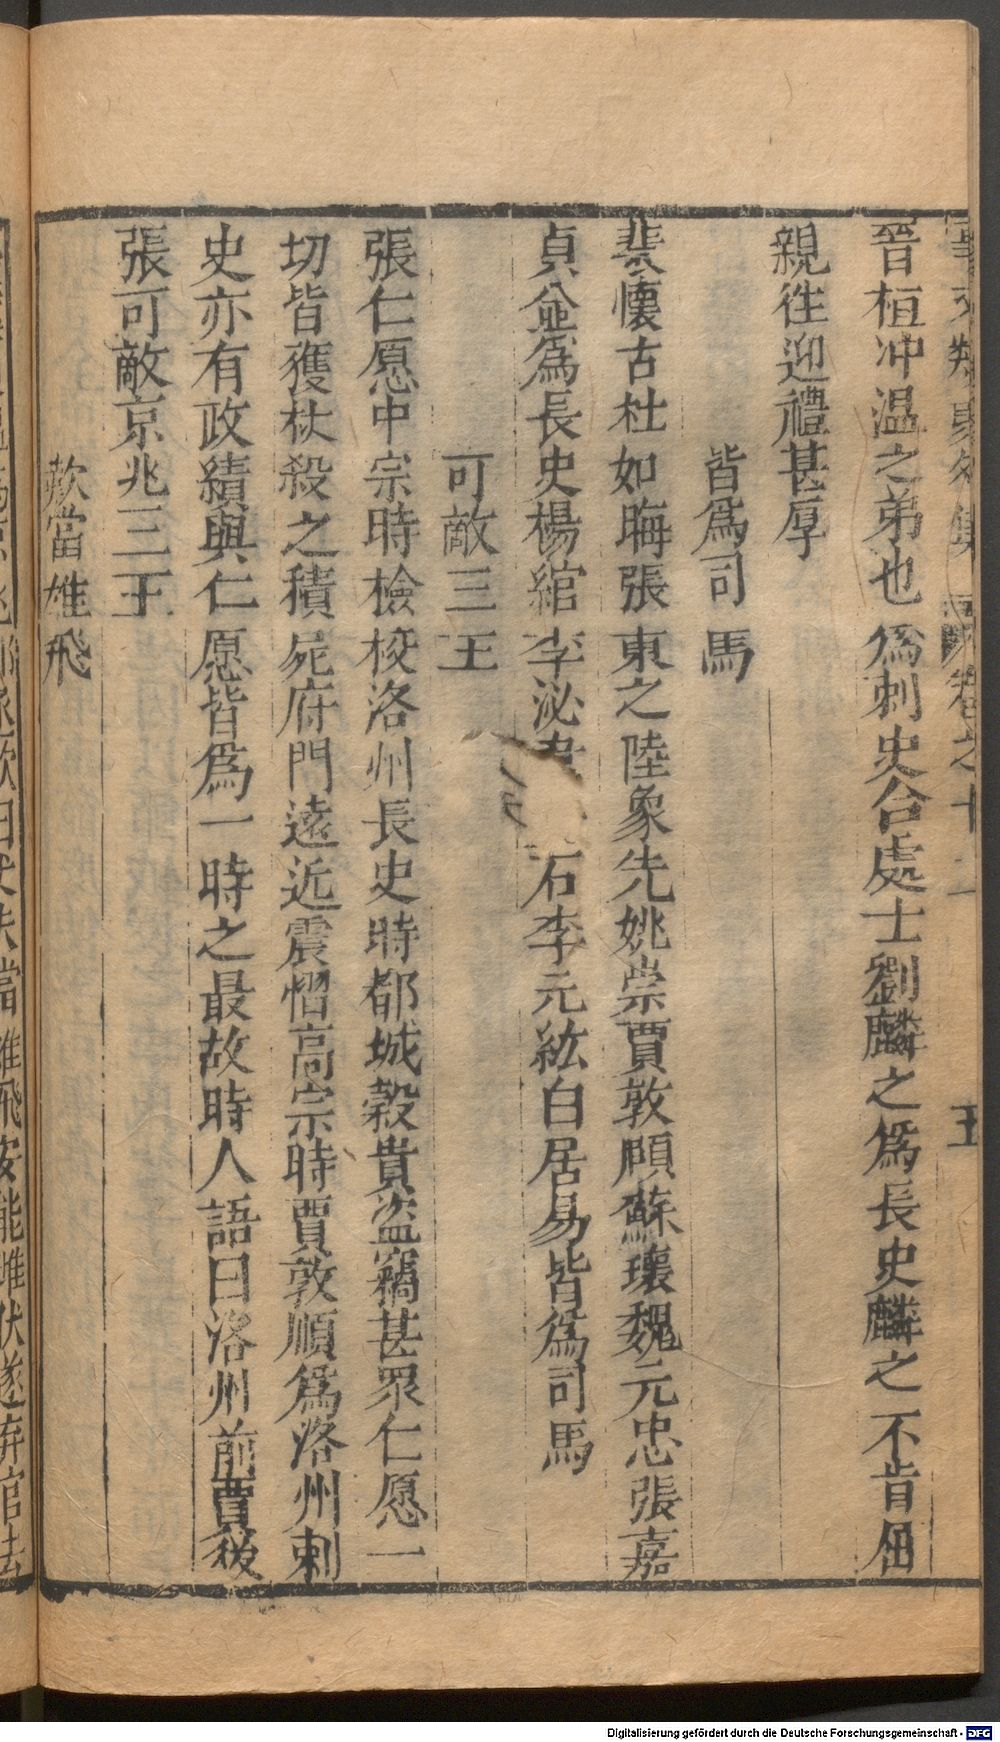 卷之十二
五
晉桓冲温之弟也爲刺史命處士劉麟之爲長史麟之不肯屈
親往迎禮甚厚
皆爲司馬
裴懷古杜如晦張東之陸象先姚崇賈敦頤蘇瓌魏元忠張嘉
貞並爲長史楊綰李泌 石李元紘白居易皆爲司馬
可敵三王
張仁愿中宗時檢校洛州長史時都城穀貴盜竊甚眾仁愿一
切皆獲杖殺之積屍府門遠近震慴高宗時賈敦順爲洛州刺
史亦有政績與仁愿皆爲一時之最故時人語曰洛州前賈後
張可敵京兆三王
歎當雄飛
丞歎曰丈夫當雄飛安能雌伏遂弃官去
Digitalisierung gefördert durch die Deutsche Forschungsgemeinschaft - DFG